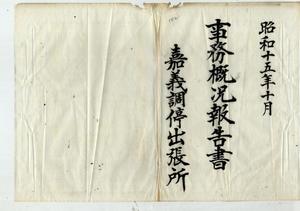 昭和十五年十月
事務概況報告書
嘉義調停出張所